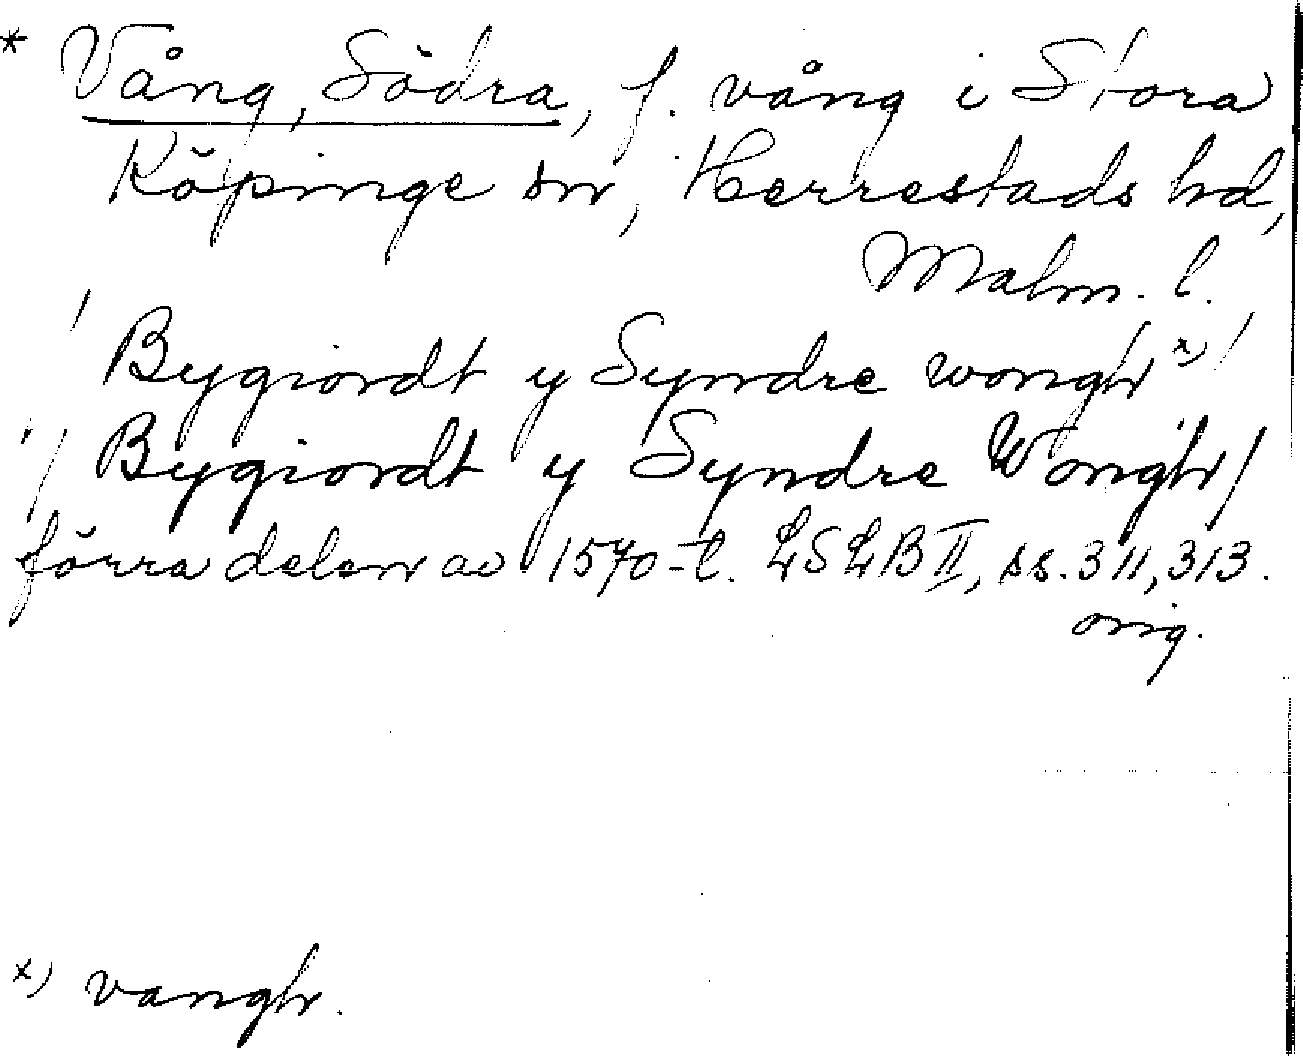 * Vång, Södra, f. vång i Stora
Köpinge sn, Herrestads hd,
Malm. l.
/ Bygiordt y Syndre wongh x) /
'/ Bygiordt y Syndre Wongh /
förra delen av 1570-t. LSLB II, ss. 311, 313.
orig.
x) vangh.